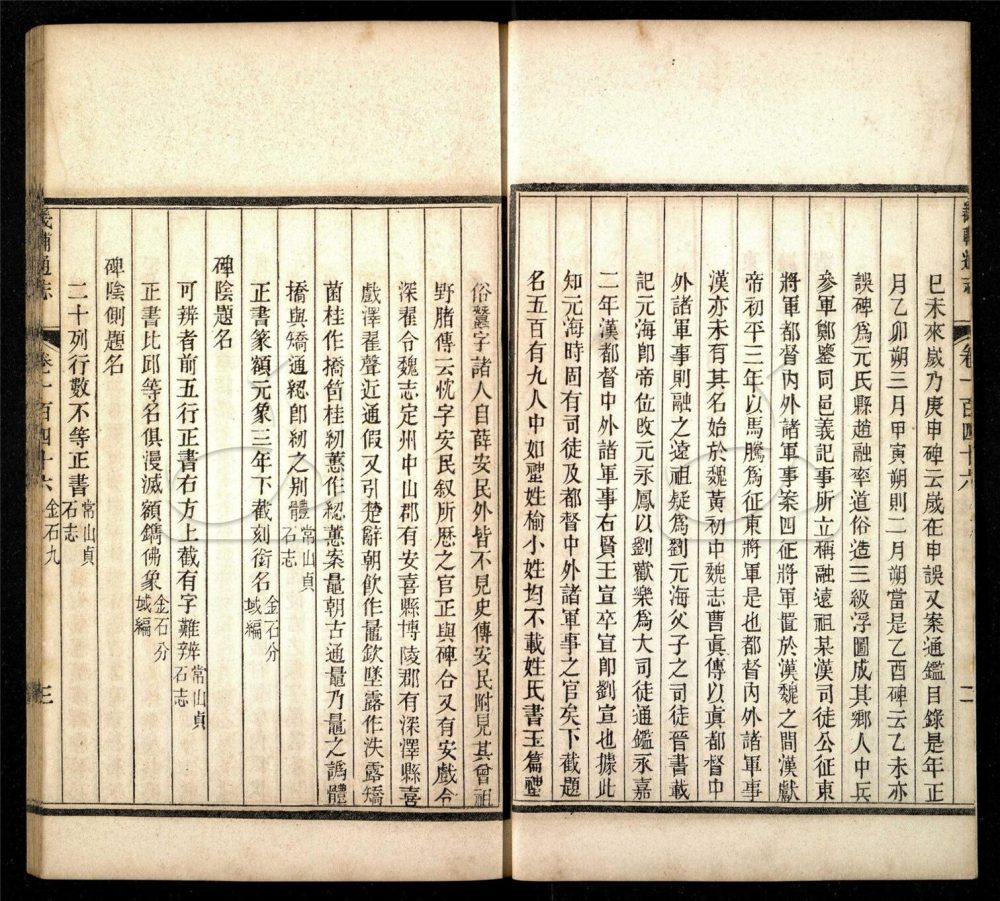 巳未來歲乃庚申碑云歲在申誤又案通鑑目錄是年正
月乙卯朔三月甲寅朔則二月朔當是乙酉碑云乙未亦
誤碑爲元氏縣趙融率道俗造三級浮圖成其鄉人中兵
參軍鄭鑒同邑義記事所立稱融遠祖某漢司徒公征東
將軍都督內外諸軍事案四征將軍置於漢魏之間漢獻
帝初平三年以馬騰爲征東將軍是也都督內外諸軍事
漢亦未有其名始於魏黃初中魏志曹眞傳以眞都督中
外諸軍事則融之遠祖疑爲劉元海父子之司徒晉書載
記元海卽帝位改元永鳳以劉歡樂爲大司徒通鑑永嘉
二年漢都督中外諸軍事右賢王宣卒宣卽劉宣也據此
知元海時固有司徒及都督中外諸軍事之官矣下截題
名五百有九人中如壐姓榆小姓均不載姓氏書玉篇壐
畿輔通志 卷一百四十六 二
俗蠶字諸人自薛安民外皆不見史傳安民附見其曾祖
野𦙶傳云忱字安民叙所歷之官正與碑合又有安戲令
深翟令魏志定州中山郡有安喜縣博陵郡有深澤縣喜
戲澤翟聲近通假又引楚辭朝飲作鼂飲墜露作泆露矯
菌桂作撟笞桂紉蕙作綛蕙案鼂朝古通量乃鼂之譌體
撟與矯通綛卽紉之別體常山貞石志
正書篆額元象三年下截刻銜名金石分域編
碑陰題名
可辨者前五行正書右方上截有字難辨常山貞石志
正書比邱等名俱漫滅額鐫佛象金石分域編
碑陰側題名
二十列行數不等正書常山貞石志
畿輔通志 卷一百四十六 金石九 三